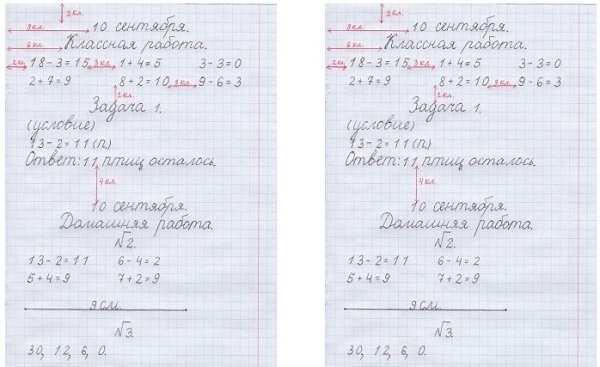 2 кл.
9 кл. 10 сентября.
6 кл. Классная работа.
2 кл. 18-3=15 3 кл. 1+4=5 3-3=0
2+7=9 8+2=10 3 кл. 9-6=3
2 кл.
Задача 1.
(условие)
13-2=11(п.)
Ответ: 11 птиц осталось.
4 кл.
10 сентября.
Домашняя работа.
№2.
13-2=11 6-4=2
5+4=9 7+2=9
9 см.
№3.
30, 12, 6, 0.
2 кл.
9 кл. 10 сентября.
6 кл. Классная работа.
2 кл. 18-3=15 3 кл. 1+4=5 3-3=0
2+7=9 8+2=10 3 кл. 9-6=3
2 кл.
Задача 1.
(условие)
13-2=11(п.)
Ответ: 11 птиц осталось.
4 кл.
10 сентября.
Домашняя работа.
№2.
13-2=11 6-4=2
5+4=9 7+2=9
9 см.
№3.
30, 12, 6, 0.